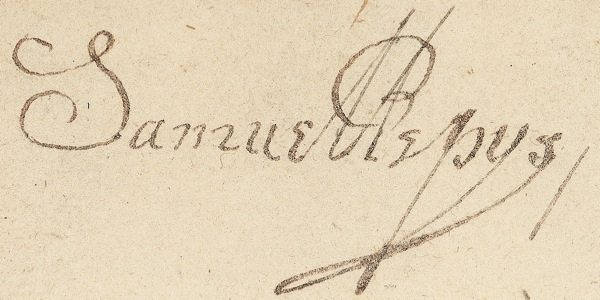 Samuel Pepys